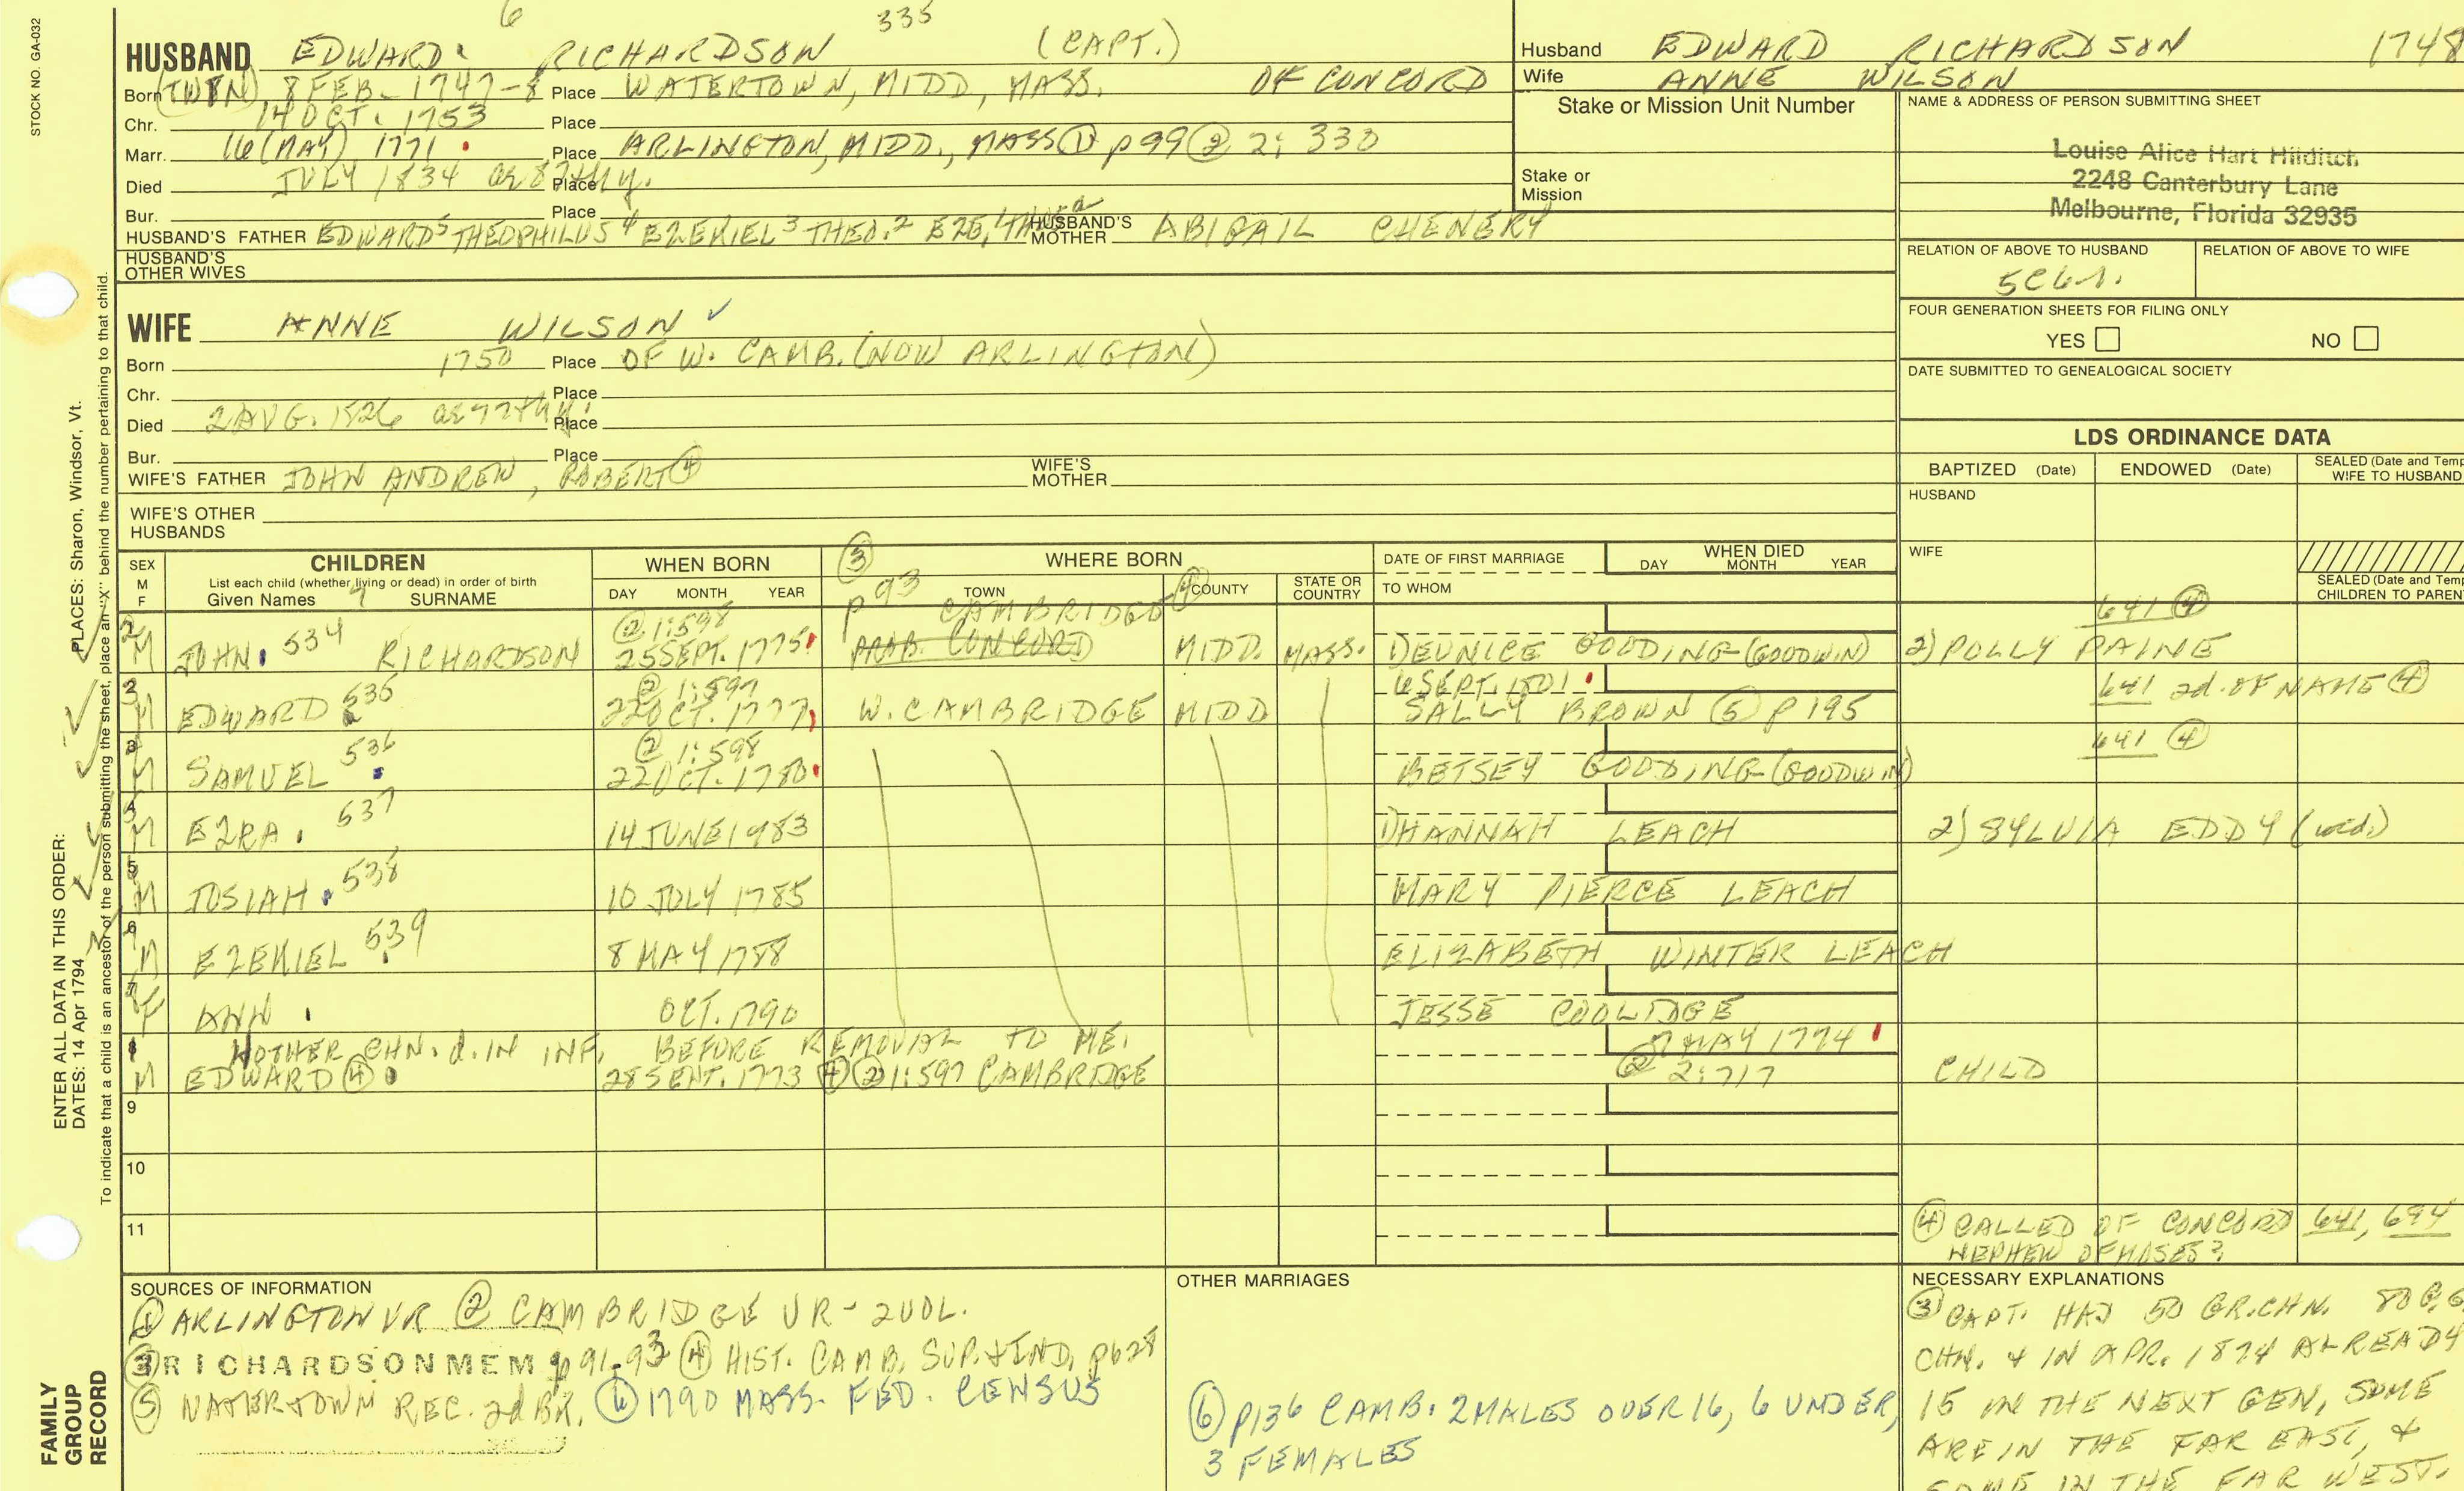 6 335
HUSBAND EDWARD RICHARDSON (CAPT.)
Born (TWIN) 8 FEB. 1747-8 Place WATERTOWN, MIDD, MASS. OF CONCORD
Chr. 14 OCT. 1753 Place
Marr. 16 (MAY) 1771 Place ARLINGTON, MIDD., MASS ① p 99 ② 2: 330
Died JULY 1834 Place
Bur. Place
HUSBAND'S FATHER EDWARD5 THEOPHILUS4 EZEKIEL3 THEO.2 EZE.1 HUSBAND'S MOTHER ABIGAIL CHENERY
HUSBAND'S OTHER WIVES
WIFE ANNE WILSON ✓
Born 1750 Place OF W. CAMB. (NOW ARLINGTON)
Chr. Place
Died 2 AUG. 1826 Place
Bur. Place
WIFE'S FATHER JOHN ANDREW, ROBERT ④ WIFE'S MOTHER
WIFE'S OTHER HUSBANDS
Husband EDWARD RICHARDSON 1748
Wife ANNE WILSON
Stake or Mission Unit Number
Stake or
Mission
NAME & ADDRESS OF PERSON SUBMITTING SHEET
Louise Alice Hart Hilditch
2248 Canterbury Lane
Melbourne, Florida 32935
RELATION OF ABOVE TO HUSBAND RELATION OF ABOVE TO WIFE
FOUR GENERATION SHEETS FOR FILING ONLY
YES NO
DATE SUBMITTED TO GENEALOGICAL SOCIETY
LDS ORDINANCE DATA
BAPTIZED (Date) ENDOWED (Date) SEALED (Date and Temp
WIFE TO HUSBAND
HUSBAND
WIFE
SEALED (Date and Temp
CHILDREN TO PAREN
SEX
M
F
CHILDREN
List each child (whether living or dead) in order of birth
Given Names SURNAME
WHEN BORN
DAY MONTH YEAR
③ p 93
WHERE BORN
TOWN COUNTY STATE OR COUNTRY
DATE OF FIRST MARRIAGE
TO WHOM
WHEN DIED
DAY MONTH YEAR
② 1:598 CAMBRIDGE ④ 641 ④
M JOHN 534 RICHARDSON 25 SEPT. 1775 PROB. CONCORD MIDD. MASS. 1) EUNICE GOODING (GOODWIN) 2) POLLY PAINE
2 ② 1:597 6 SEPT. 1801 641 2d. OF NAME ④
M EDWARD 535 22 OCT. 1777 W. CAMBRIDGE MIDD SALLY BROWN ⑤ p 195
3 ② 1:598 641 ④
M SAMUEL 536 22 OCT. 1780 BETSEY GOODING (GOODWIN)
4
M EZRA 537 14 JUNE 1783 1) HANNAH LEACH 2) SYLVIA EDDY (wid.)
5
M JOSIAH 538 10 JULY 1785 MARY PIERCE LEACH
6
M EZEKIEL 539 8 MAY 1788 ELIZABETH WINTER LEACH
7
F ANN OCT. 1790 JESSE COOLIDGE
8 OTHER CHN. d. IN INF. BEFORE REMOVAL TO ME. 7 MAY 1774
M EDWARD ④ 28 SEPT. 1773 ④ ② 1:597 CAMBRIDGE ② 2:717 CHILD
9
10
11
④ CALLED OF CONCORD 641, 694
NEPHEW OF MOSES?
SOURCES OF INFORMATION
① ARLINGTON VR ② CAMBRIDGE VR - 2 VOL.
③ RICHARDSON MEM p 91-93 ④ HIST. CAMB. SUP. & IND. p 628
⑤ WATERTOWN REC. 2d BK. ⑥ 1790 MASS. FED. CENSUS
OTHER MARRIAGES
⑥ p136 CAMB. 2 MALES OVER 16, 6 UNDER,
3 FEMALES
NECESSARY EXPLANATIONS
③ CAPT. HAD 50 GR. CHN. 80 G. G.
CHN. & IN APR. 1874 ALREADY
15 IN THE NEXT GEN, SOME
ARE IN THE FAR EAST, &
SOME IN THE FAR WEST.
STOCK NO. GA-032
ENTER ALL DATA IN THIS ORDER:
DATES: 14 Apr 1794
PLACES: Sharon, Windsor, Vt.
To indicate that a child is an ancestor of the person submitting the sheet, place an "X" behind the number pertaining to that child.
FAMILY
GROUP
RECORD